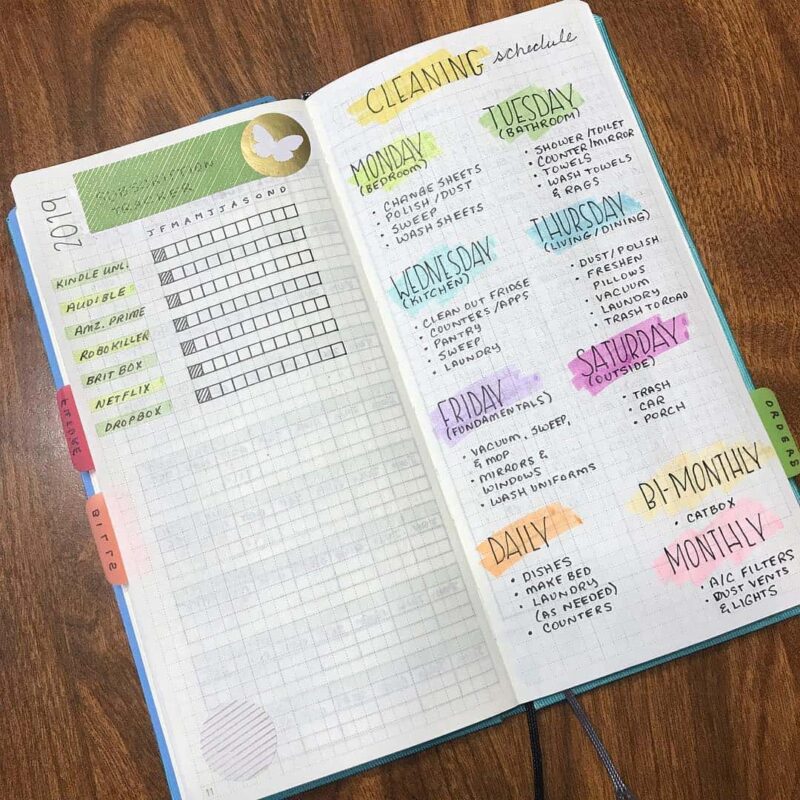 2019
SUBSCRIPTION
TRACKER
J F M A M J J A S O N D
KINDLE UNL.
AUDIBLE
AMZ. PRIME
ROBOKILLER
BRIT BOX
NETFLIX
DROPBOX
BILLS
11
CLEANING schedule
MONDAY
(BEDROOM)
• CHANGE SHEETS
• POLISH/DUST
• SWEEP
• WASH SHEETS
TUESDAY
(BATHROOM)
• SHOWER/TOILET
• COUNTER/MIRROR
• TOWELS
• WASH TOWELS
& RAGS
WEDNESDAY
(KITCHEN)
• CLEAN OUT FRIDGE
• COUNTERS/APPS
• PANTRY
• SWEEP
• LAUNDRY
THURSDAY
(LIVING/DINING)
• DUST/POLISH
• FRESHEN
PILLOWS
• VACUUM
• LAUNDRY
• TRASH TO ROAD
FRIDAY
(FUNDAMENTALS)
• VACUUM, SWEEP,
& MOP
• MIRRORS &
WINDOWS
• WASH UNIFORMS
SATURDAY
(OUTSIDE)
• TRASH
• CAR
• PORCH
DAILY
• DISHES
• MAKE BED
• LAUNDRY
(AS NEEDED)
• COUNTERS
BI-MONTHLY
• CATBOX
MONTHLY
• A/C FILTERS
• DUST VENTS
& LIGHTS
ORDERS